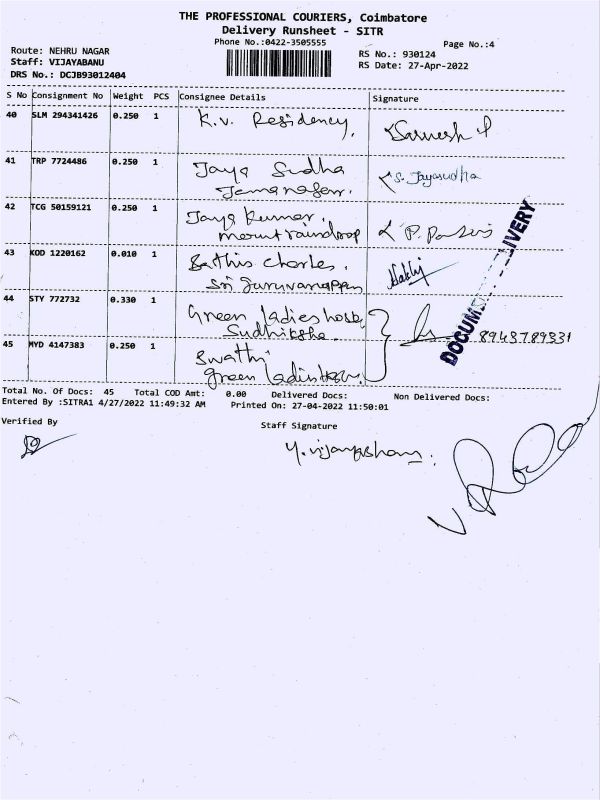 THE PROFESSIONAL COURIERS, Coimbatore
Delivery Runsheet - SITR
Phone No.:0422-3505555
Page No.:4
Route: NEHRU NAGAR
RS No.: 930124
Staff: VIJAYABANU
RS Date: 27-Apr-2022
DRS No.: DCJB93012404
S No Consignment No Weight PCS Consignee Details Signature
40 SLM 294341426 0.250 1 K.v. Residency,
41 TRP 7724486 0.250 1 Jaya Sudha S. Jayasudha
Jamanagar.
42 TCG 50159121 0.250 1 Jaya Kumar.
mount raindrop
43 KOD 1220162 0.010 1 charles.
Sri
44 STY 772732 0.330 1 Green ladies
Sudhiksha.
8943789331
45 MYD 4147383 0.250 1 Swathi
green
Total No. Of Docs: 45 Total COD Amt: 0.00 Delivered Docs: Non Delivered Docs:
Entered By :SITRA1 4/27/2022 11:49:32 AM Printed On: 27-04-2022 11:50:01
Verified By
Staff Signature